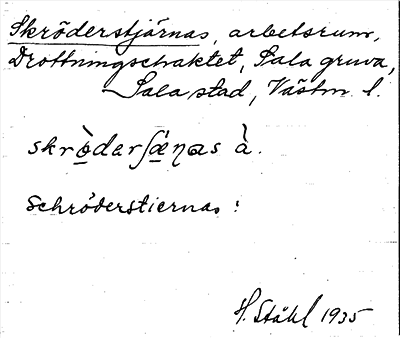 Skröderstjärnas, arbetsrum,
Drottningschaktet, Sala gruva,
Sala stad, Västm. l.
skrö̀darʃǽŋas à.
Schröderstiernas:
H. Ståhl 1935